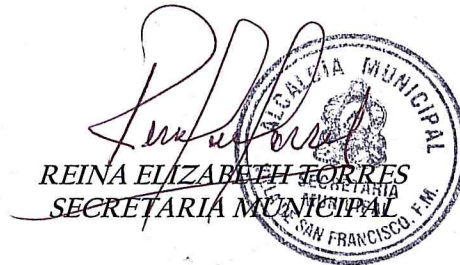 REINA ELIZABETH TORRES
SECRETARIA MUNICIPAL
ALCALDIA MUNICIPAL
SECRETARIA
MUNICIPAL
SAN FRANCISCO, F.M.